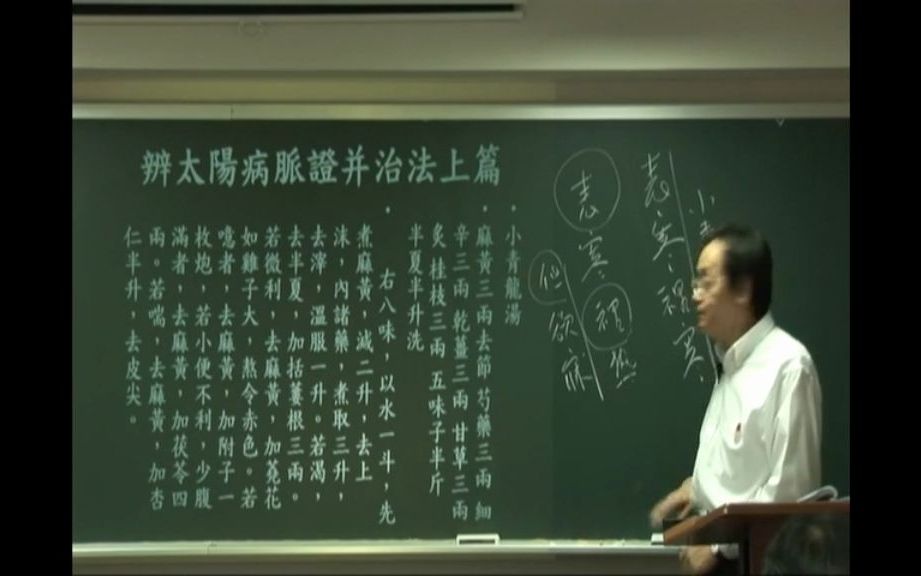 辨太陽病脈證并治法上篇
・小青龍湯
・麻黃三兩去節 芍藥三兩 細
辛三兩 乾薑三兩 甘草三兩
炙 桂枝三兩 五味子半斤
半夏半升洗
・右八味，以水一斗，先
煮麻黃，減二升，去上
沫，內諸藥，煮取三升，
去滓，溫服一升。若渴，
去半夏，加括蔞根三兩。
若微利，去麻黃，加蕘花
如雞子大，熬令赤色。若
噫者，去麻黃，加附子一
枚炮，若小便不利，少腹
滿者，去麻黃，加茯苓四
兩。若喘，去麻黃，加杏
仁半升，去皮尖。
小
表寒裡寒
表寒裡熱
但欲